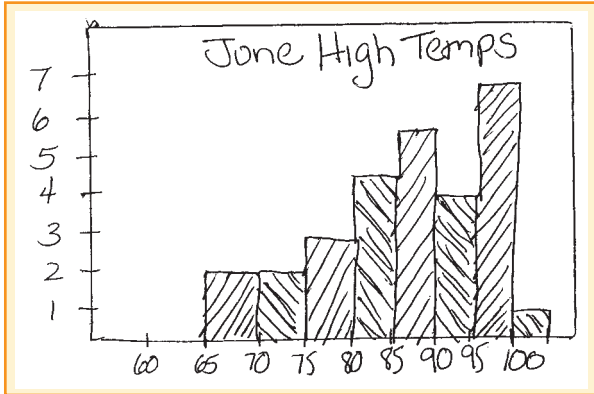 June High Temps
7
6
5
4
3
2
1
60 65 70 75 80 85 90 95 100